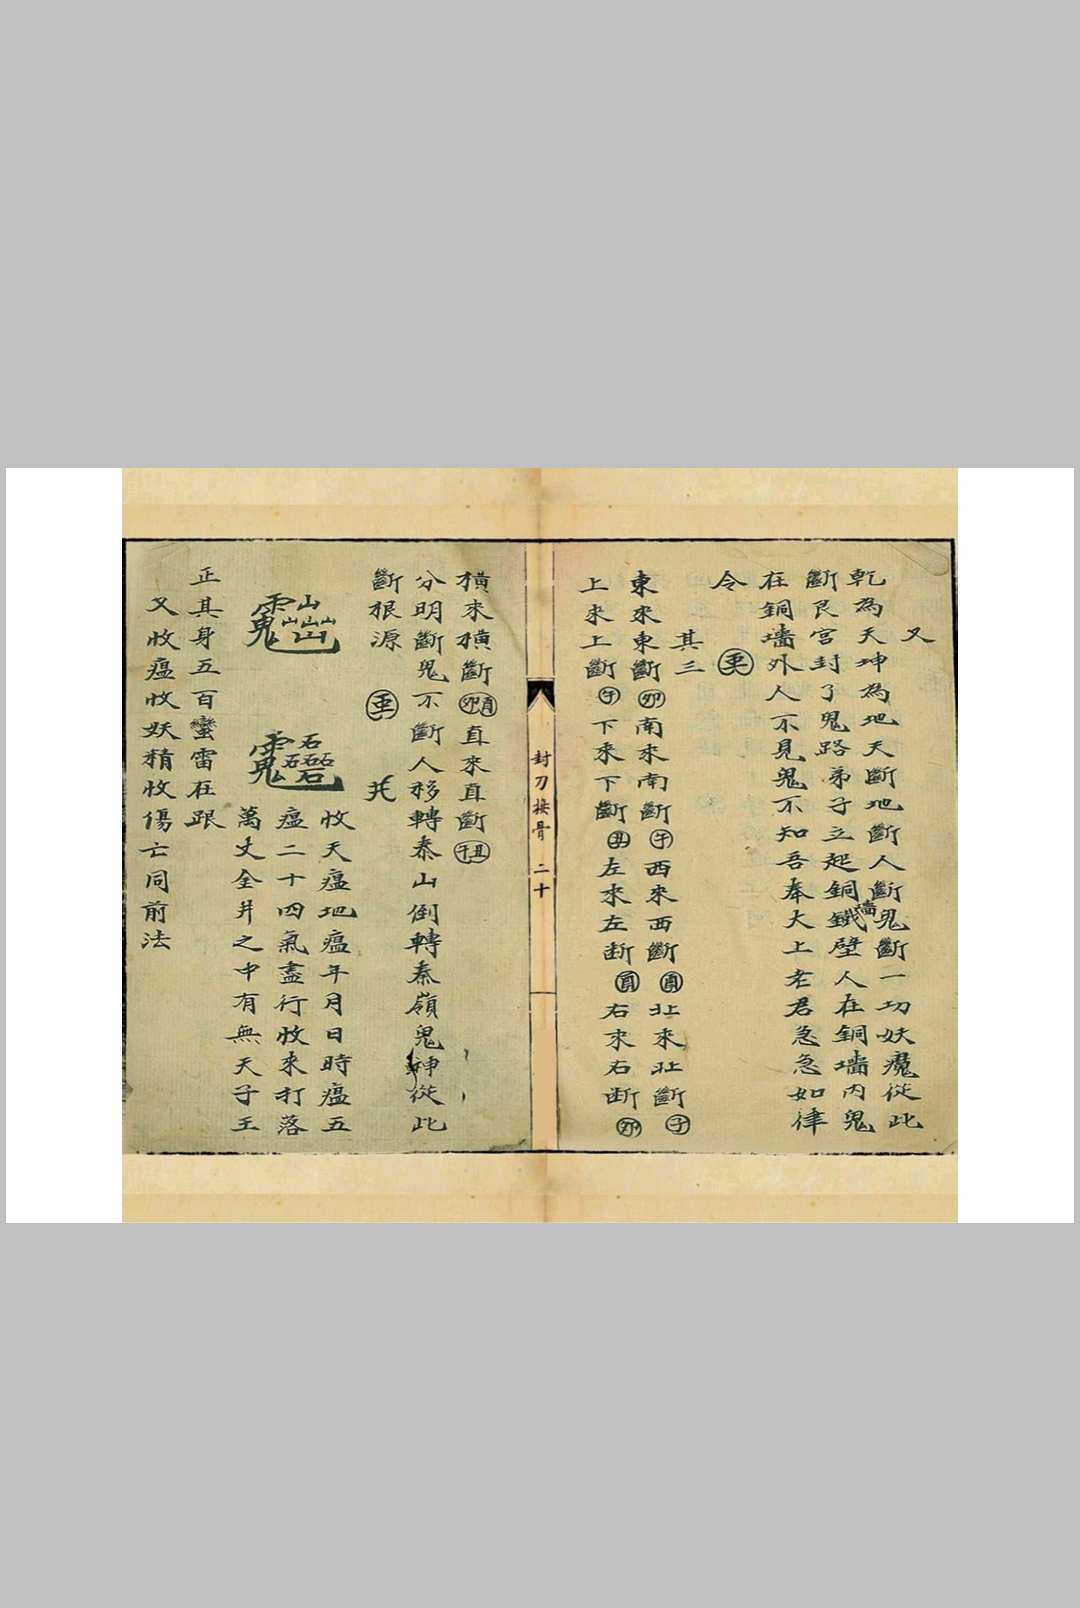 又
乾為天坤為地天斷地斷人斷鬼斷一功妖魔從此
斷艮宮封了鬼路弟子立起銅墻鐵壁人在銅墻內鬼
在銅墻外人不見鬼鬼不知吾奉大上老君急急如律
令
其三
東來東斷卯南來南斷午西來西斷酉北來北斷子
上來上斷午下來下斷丑左來左断寅右來右断卯
封刀接骨 二十
橫來橫斷卯寅直來直斷午丑
分明斷鬼不斷人移轉泰山倒轉秦嶺鬼神從此
斷根源
收天瘟地瘟年月日時瘟五
瘟二十四氣盡行收來打落
萬丈全井之中有無天子王
正其身五百蠻雷在跟
又收瘟收妖精收傷亡同前法